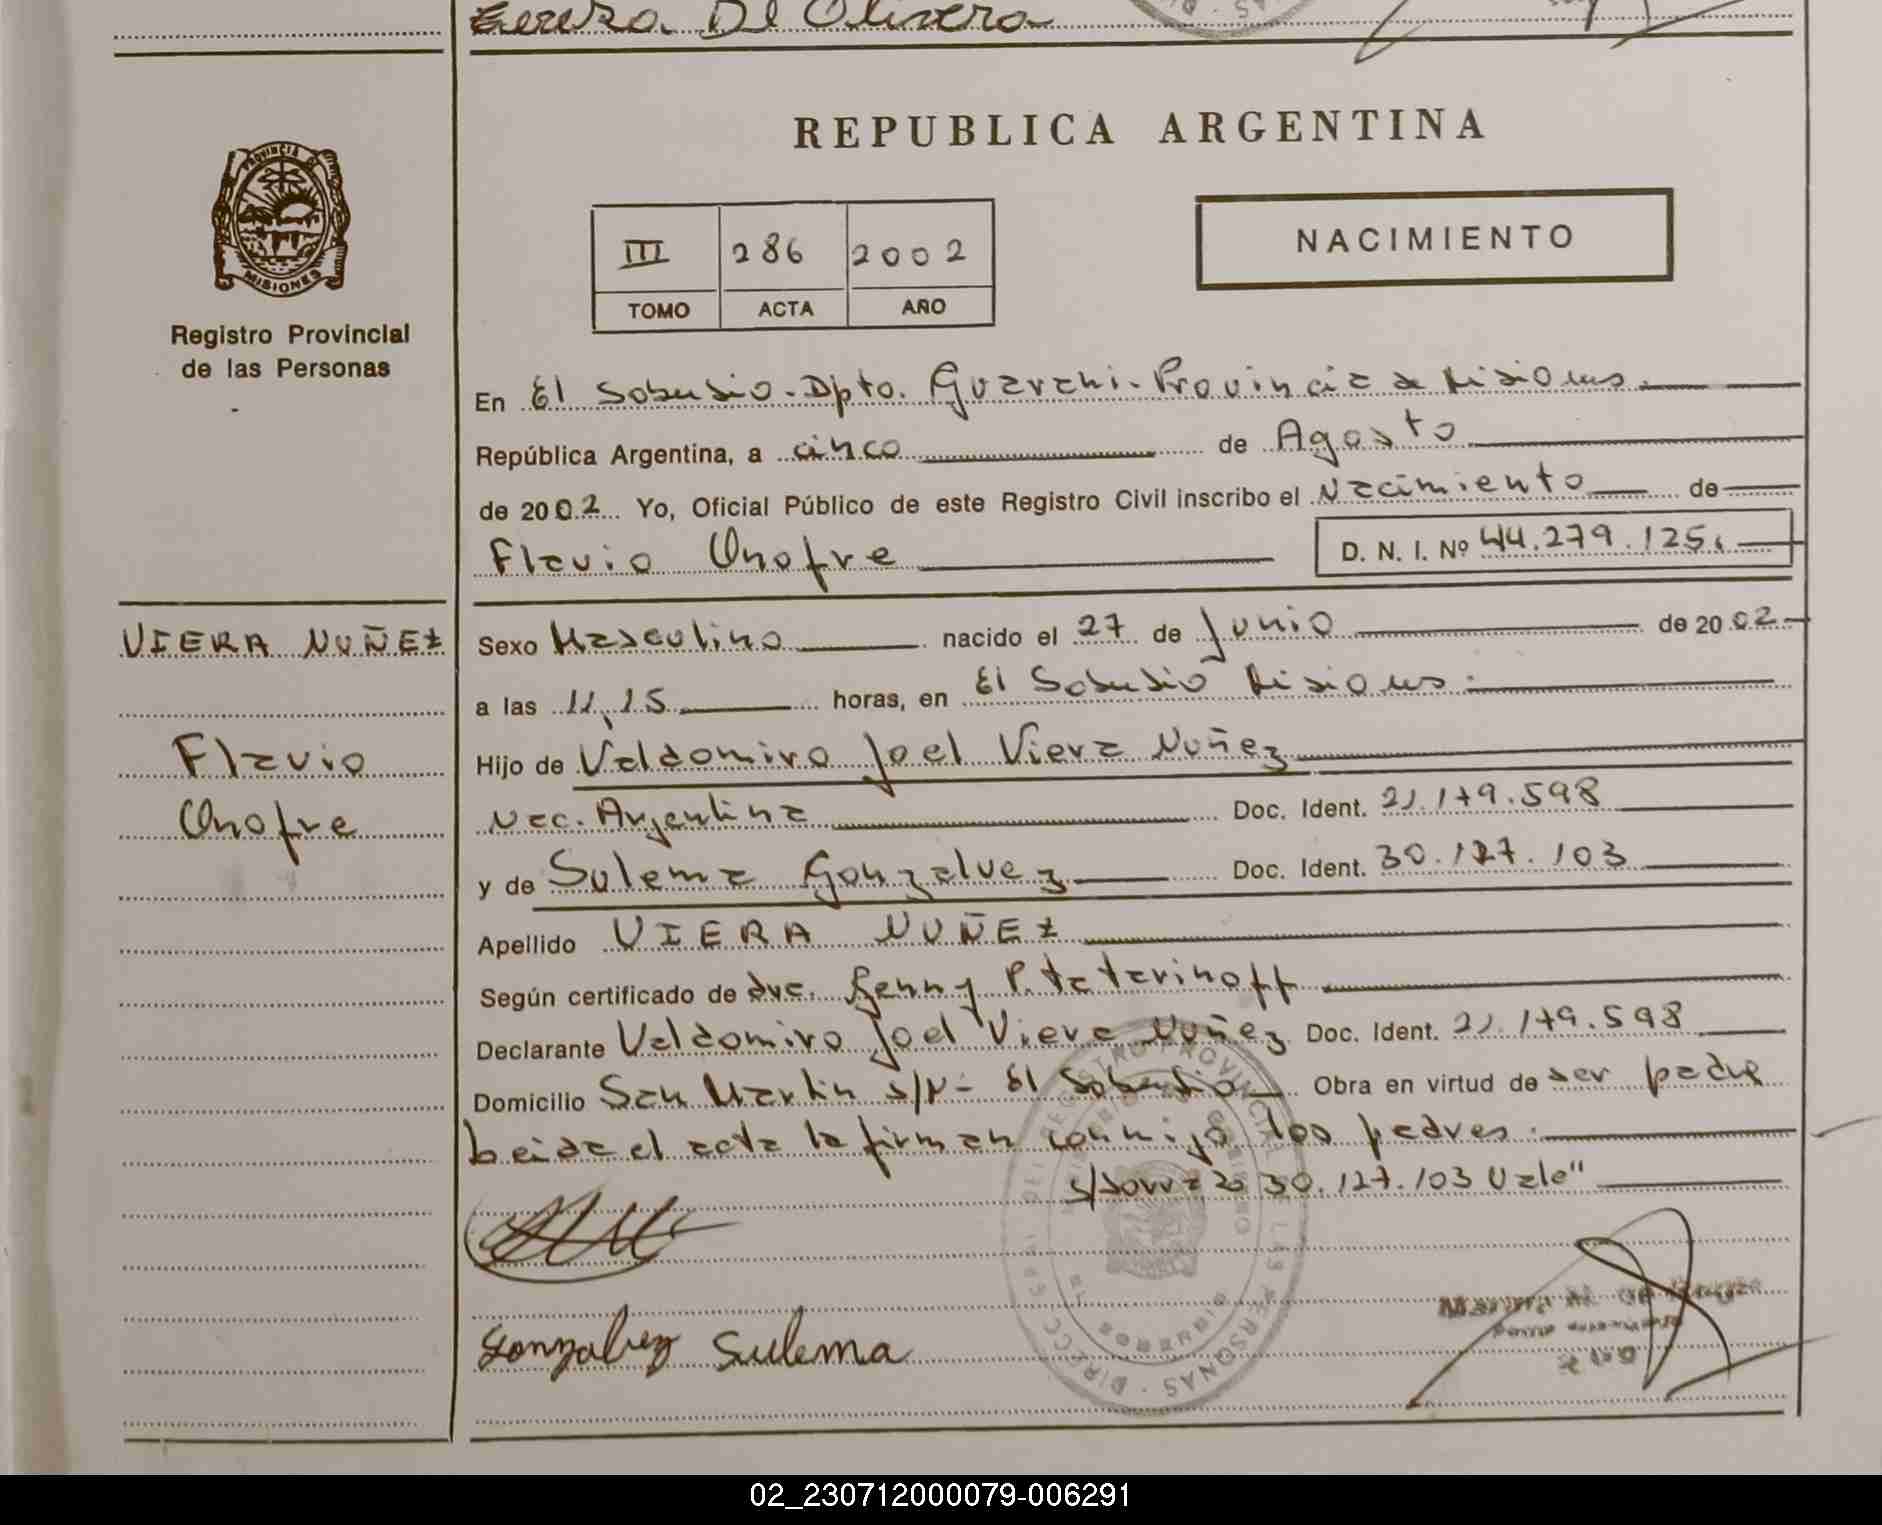 Tereza De Olivera
REPUBLICA ARGENTINA
PROVINCIA DE
MISIONES
Registro Provincial
de las Personas
III 286 2002
TOMO ACTA AÑO
NACIMIENTO
En El Soberbio - Dpto. Guarani - Provincia de Misiones.
República Argentina, a cinco de Agosto
de 2002 Yo, Oficial Público de este Registro Civil inscribo el Nacimiento de
Flavio Onofre D. N. I. Nº 44.279.125.
VIERA NUÑEZ
Flavio
Onofre
Sexo Masculino nacido el 27 de Junio de 2002
a las 11,15 horas, en El Soberbio Misiones.
Hijo de Valdomiro Joel Viera Nuñez
Nac. Argentina Doc. Ident. 21.179.598
y de Sulema Gonzalvez Doc. Ident. 30.127.103
Apellido VIERA NUÑEZ
Según certificado de dra. Renny P. Tatarinoff
Declarante Valdomiro Joel Viera Nuñez Doc. Ident. 21.179.598
Domicilio San Martin s/n - El Soberbio Obra en virtud de ser padre
Leida el acta la firman conmigo los padres.
s/borrado 30.127.103 Vale"
Gonzalvez Sulema
DIRECC GRAL DEL REGISTRO PROVINCIAL DE LAS PERSONAS
MINISTERIO DE GOBIERNO
02_230712000079-006291